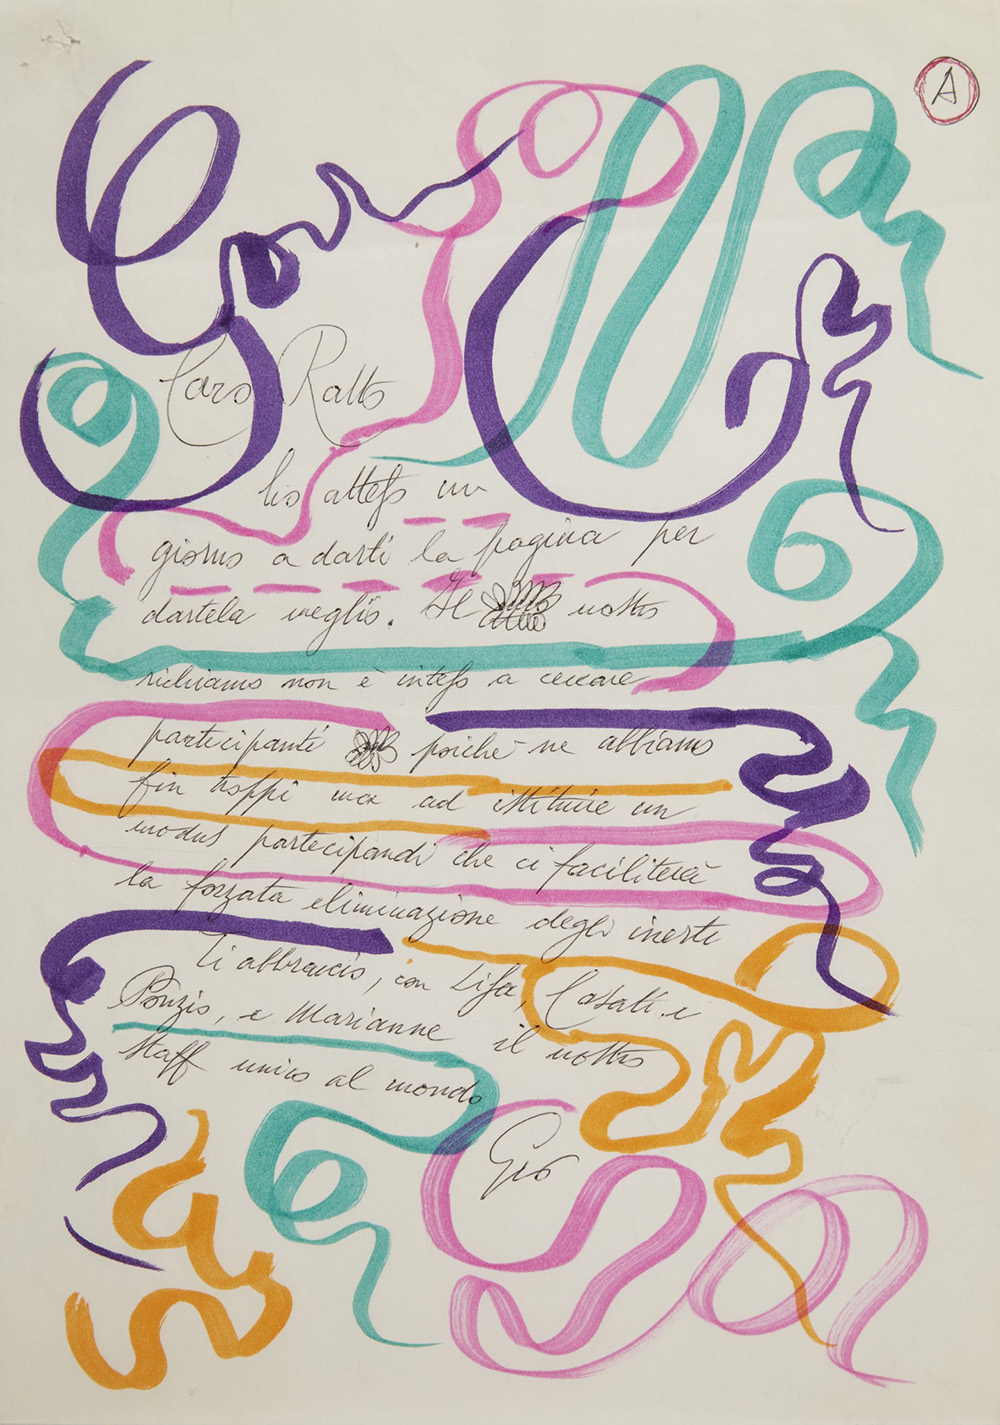 A
Caro Ratto
ho atteso un
giorno a darti la pagina per
dartela meglio. Il nostro
richiamo non è inteso a cercare
partecipanti poiché ne abbiamo
fin troppi ma ad istituire un
modus partecipandi che ci faciliterà
la forzata eliminazione degli inerti
Ti abbraccio, con Lisa, Casati, e
Ponzio, e Marianne il nostro
staff unico al mondo
Gio